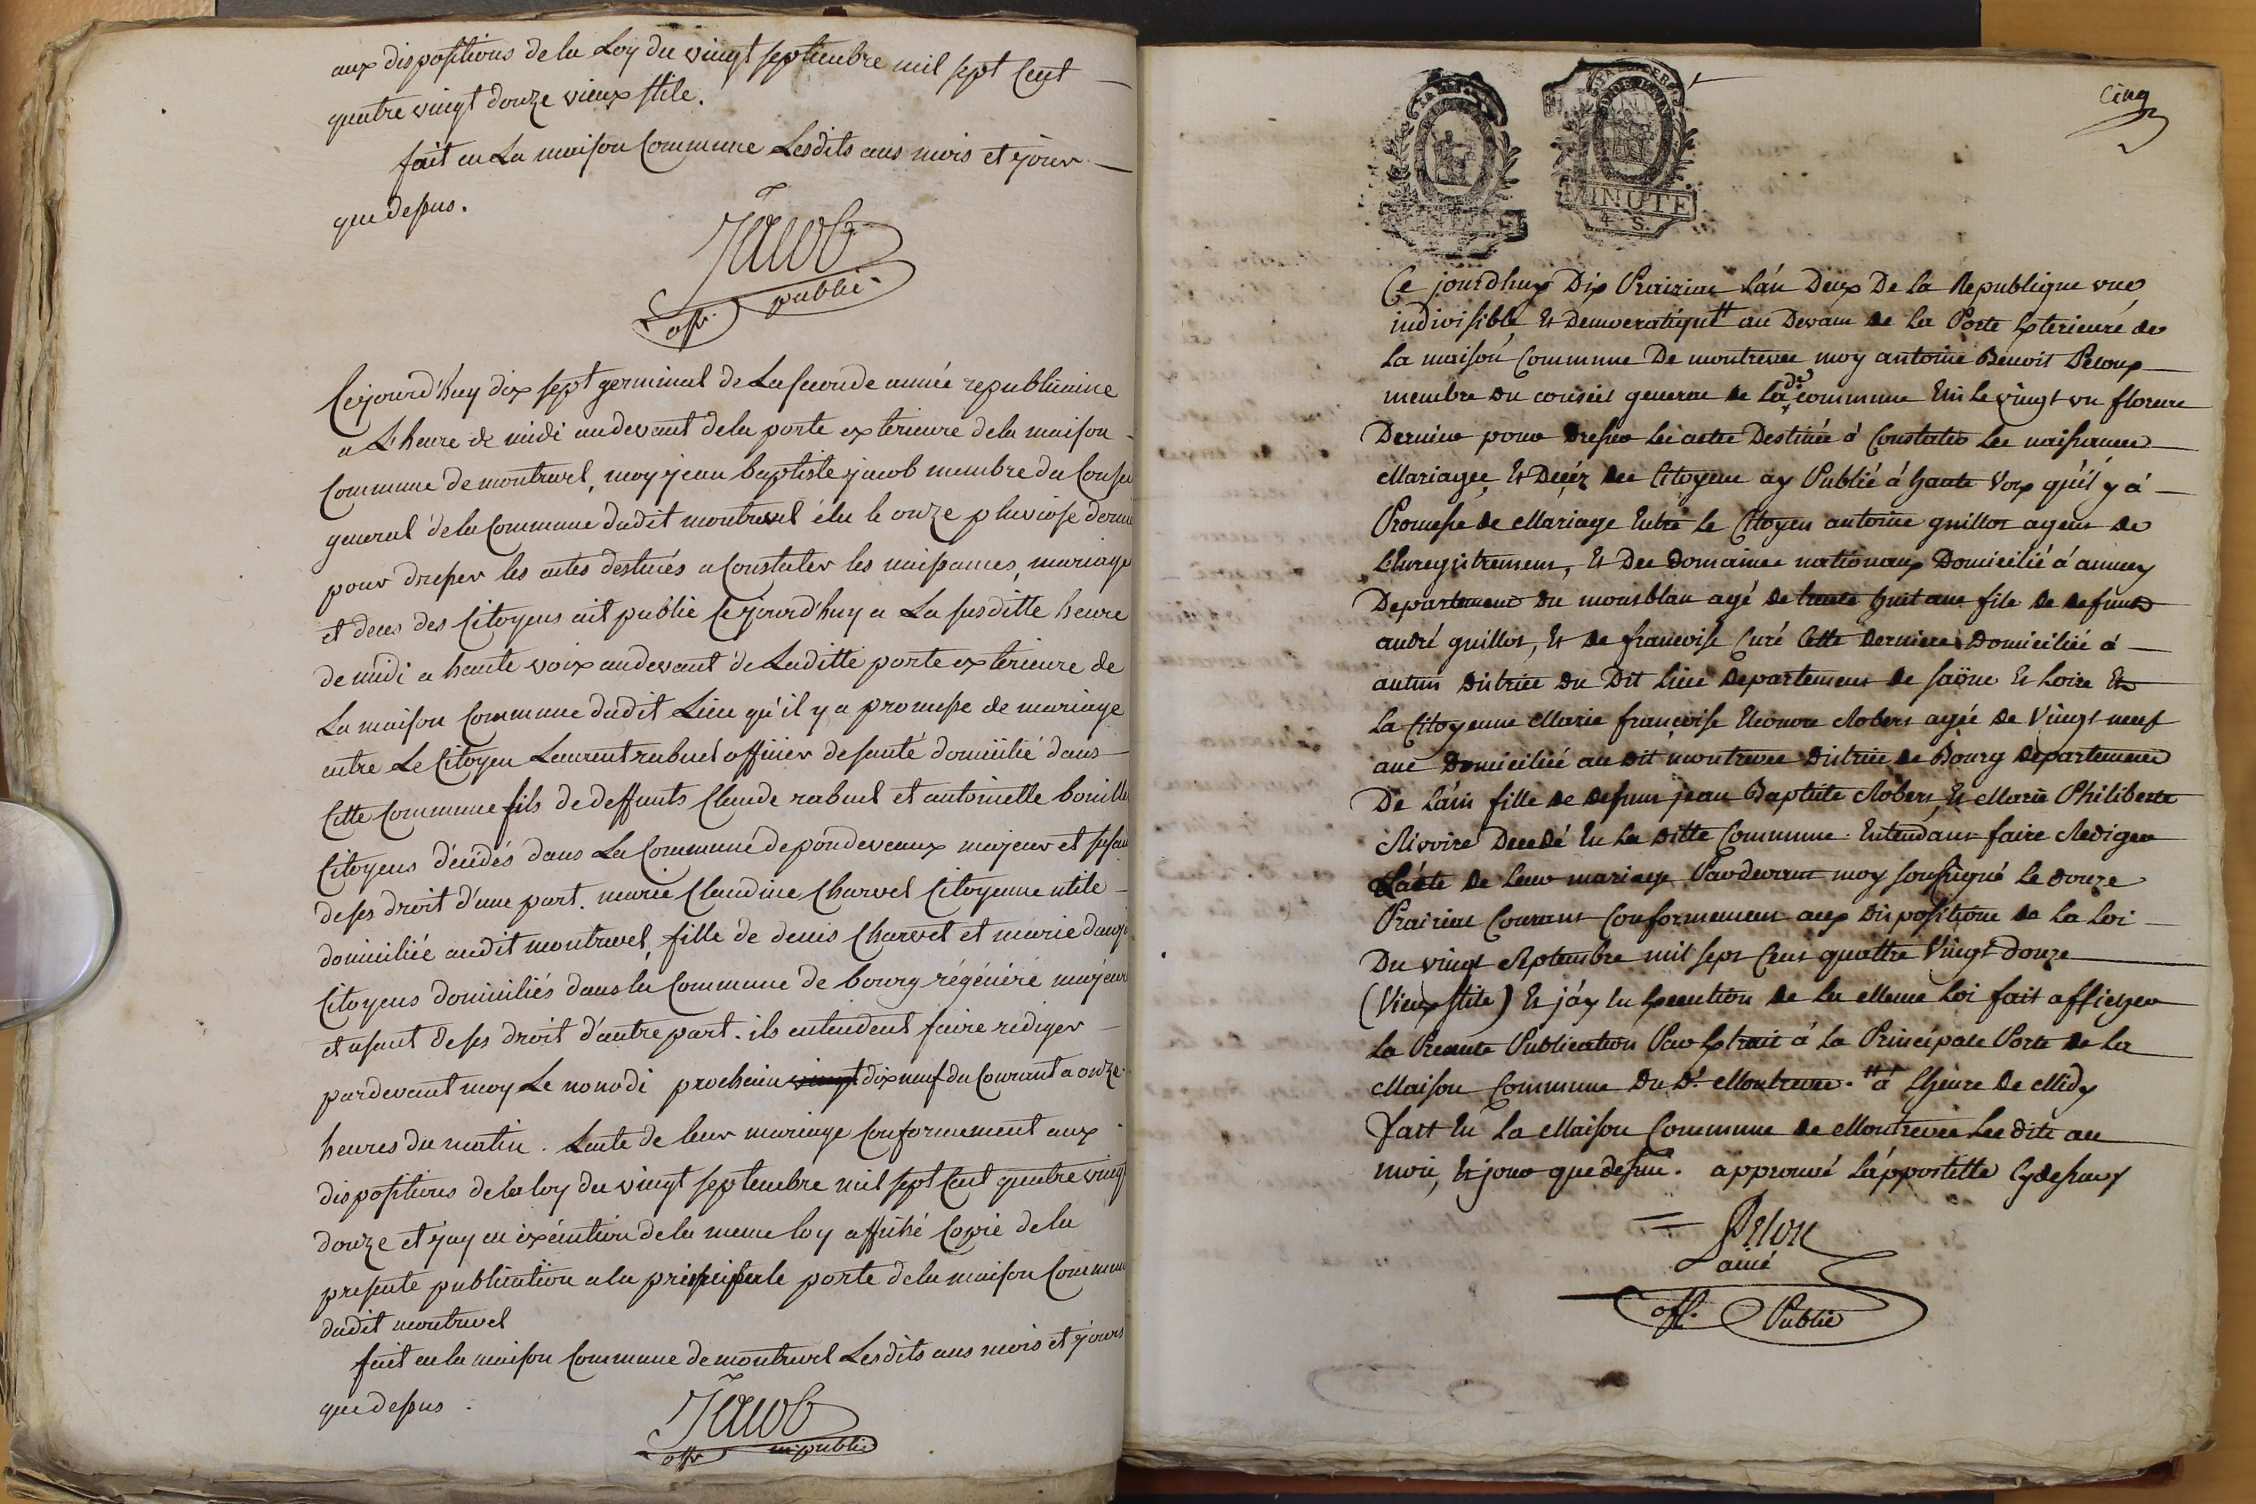 aux dispositions de la Loy du vingt septembre mil sept Cent
quatre vingt douze vieux stile.
fait en La maison Commune Lesdits ans mois et jour
que dessus.
Jacob
offr. public
Cejourd'huy dix sept germinal de La seconde année republicaine
a L'heure de midi au devant dela porte exterieure dela maison
Commune de montrevel, moy jean baptiste jacob membre du Conseil
general de la Commune dudit montrevel élu le onze pluviose dernier
pour dresser les actes destinés a Constater les naissances, mariages
et deces des Citoyens ait publié Cejourd'huy a La susditte heure
de midi a haute voix au devant de Laditte porte exterieure de
La maison Commune dudit Lieu qu'il y a promesse de mariage
entre Le Citoyen Laurent rabuel officier de santé domicilié dans
Cette Commune fils de deffunts Claude rabuel et antoinette
Citoyens décédés dans La Commune de pondevaux majeur et
de ses droit d'une part. marie Claudine Charvet Citoyenne utile
domiciliée audit montrevel, fille de denis Charvet et marie
Citoyens domiciliés dans la Commune de bourg régénéré majeure
et usant de ses droit d'autre part. ils entendent faire rediger
pardevant moy Le nonodi prochain vingt dix neuf du Courant a onze
heures du matin. Lacte de leur mariage Conformement aux
dispositions de la loy du vingt septembre mil sept Cent quatre vingt
douze et j'ay en exécution de la meme loy affiché Copie de la
presente publication a la principale porte dela maison Commune
dudit montrevel
fait en la maison Commune de montrevel Lesdits ans mois et jours
que dessus.
Jacob
offr public
Cinq
MINUTE
4 S.
Ce jourdhuy Dix Prairial L'an Deux De La Republique une
indivisible Et Democratique au Devant de La Porte Exterieure de
La maison Commune De montrevel moy antoine Benoit Peloux
membre du conseil general de La de commune Elu le vingt un floreal
Dernier pour Dresser les actes Destinés á Constater les naissances
Mariages, Et Décéz des Citoyens ay Publié á haute Voix qu'il y á
Promesse de Mariage Entre Le Citoyen antoine guillot agent de
L'Enregistrement, Et Des Domaines nationaux Domicilié á annecy
Departement du montblan agé de trente huit ans fils de defunt
andré guillot, Et de francoise Curé Cette derniere Domiciliée á
autun district du Dit Lieu Departement de saône Et Loire Et
La Citoyenne Marie françoise Eleonore Robert agée de Vingt neuf
ans Domiciliée au dit montrevel District de Bourg Departement
De L'ain fille de defunt jean Baptiste Robert, Et Marie Philiberte
Rivoire Decedé En La ditte Commune. Entendant faire Rediger
L'acte de Leur mariage Pardevant moy soussigné Le douze
Prairial Courant Conformement aux dispositions de La Loi
Du vingt Septembre mil sept Cent quattre Vingt douze
(Vieux stile) Et j'ay En Execution de La Meme Loi fait afficher
La Presente Publication Par Extrait á La Principale Porte de La
Maison Commune Du Dt. Montrevel. á L'heure de Midy
fait En La Maison Commune de Montrevel Les dits an
mois, Et jour que dessus. approuvé L'appostille Cydessus
Lainé
off. Public